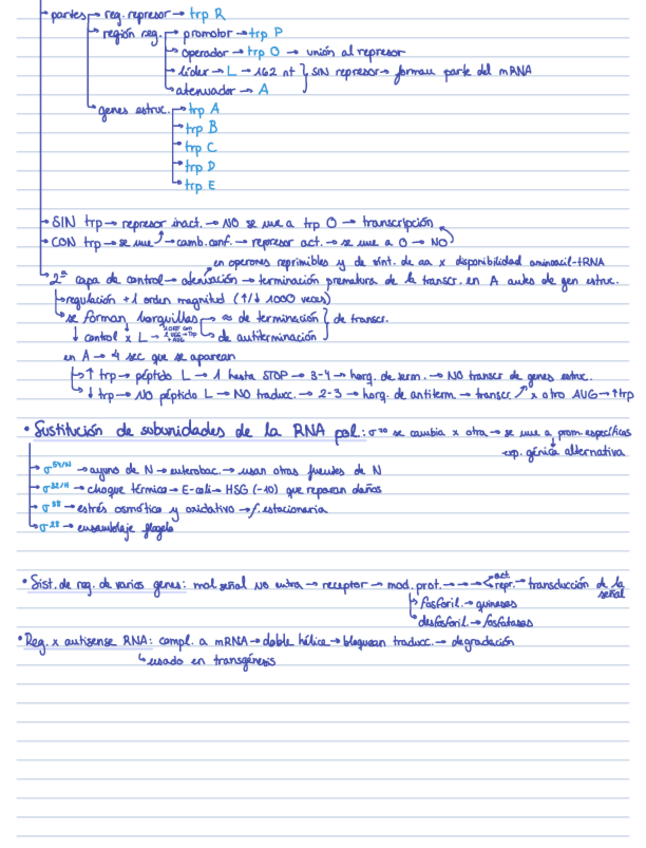 partes → reg. represor → trp R
región reg. → promotor → trp P
operador → trp O → unión al represor
líder → L → 162 nt } SIN represor → forman parte del mRNA
atenuador → A
genes estruc. → trp A
trp B
trp C
trp D
trp E
SIN trp → represor inact. → NO se une a trp O → transcripción
CON trp → se une → camb. conf. → represor act. → se une a O → NO
en operones reprimibles y de sínt. de aa x disponibilidad aminoacil-tRNA
2ª capa de control → atenuación → terminación prematura de la transcr. en A antes de gen estruc.
regulación +1 orden magnitud (↑/↓ 1000 veces)
se forman horquillas → ≈ de terminación } de transcr.
↓ control x L → de antiterminación
en A → 4 sec que se aparean
↑ trp → péptido L → 1 hasta STOP → 3-4 → horq. de term. → NO transcr de genes estruc.
↓ trp → NO péptido L → NO traducc. → 2-3 → horq. de antiterm → transcr x otro AUG → ↑trp
• Sustitución de subunidades de la RNA pol.: σ⁷⁰ se cambia x otra → se une a prom. específicos
exp. génica alternativa
σ⁵⁴/ᴺ → ayuno de N → enterobac. → usan otras fuentes de N
σ³²/ᴴ → choque térmico → E-coli → HSG (-10) que reparan daños
σ³⁸ → estrés osmótico y oxidativo → f. estacionaria
σ²⁸ → ensamblaje flagelo
• Sist. de reg. de varios genes: mol señal NO entra → receptor → mod. prot. → → → act. repr. → transducción de la señal
fosforil. → quinasas
desfosforil → fosfatasas
• Reg. x antisense RNA: compl. a mRNA → doble hélice → bloquean traducc. → degradación
↳ usado en transgénesis